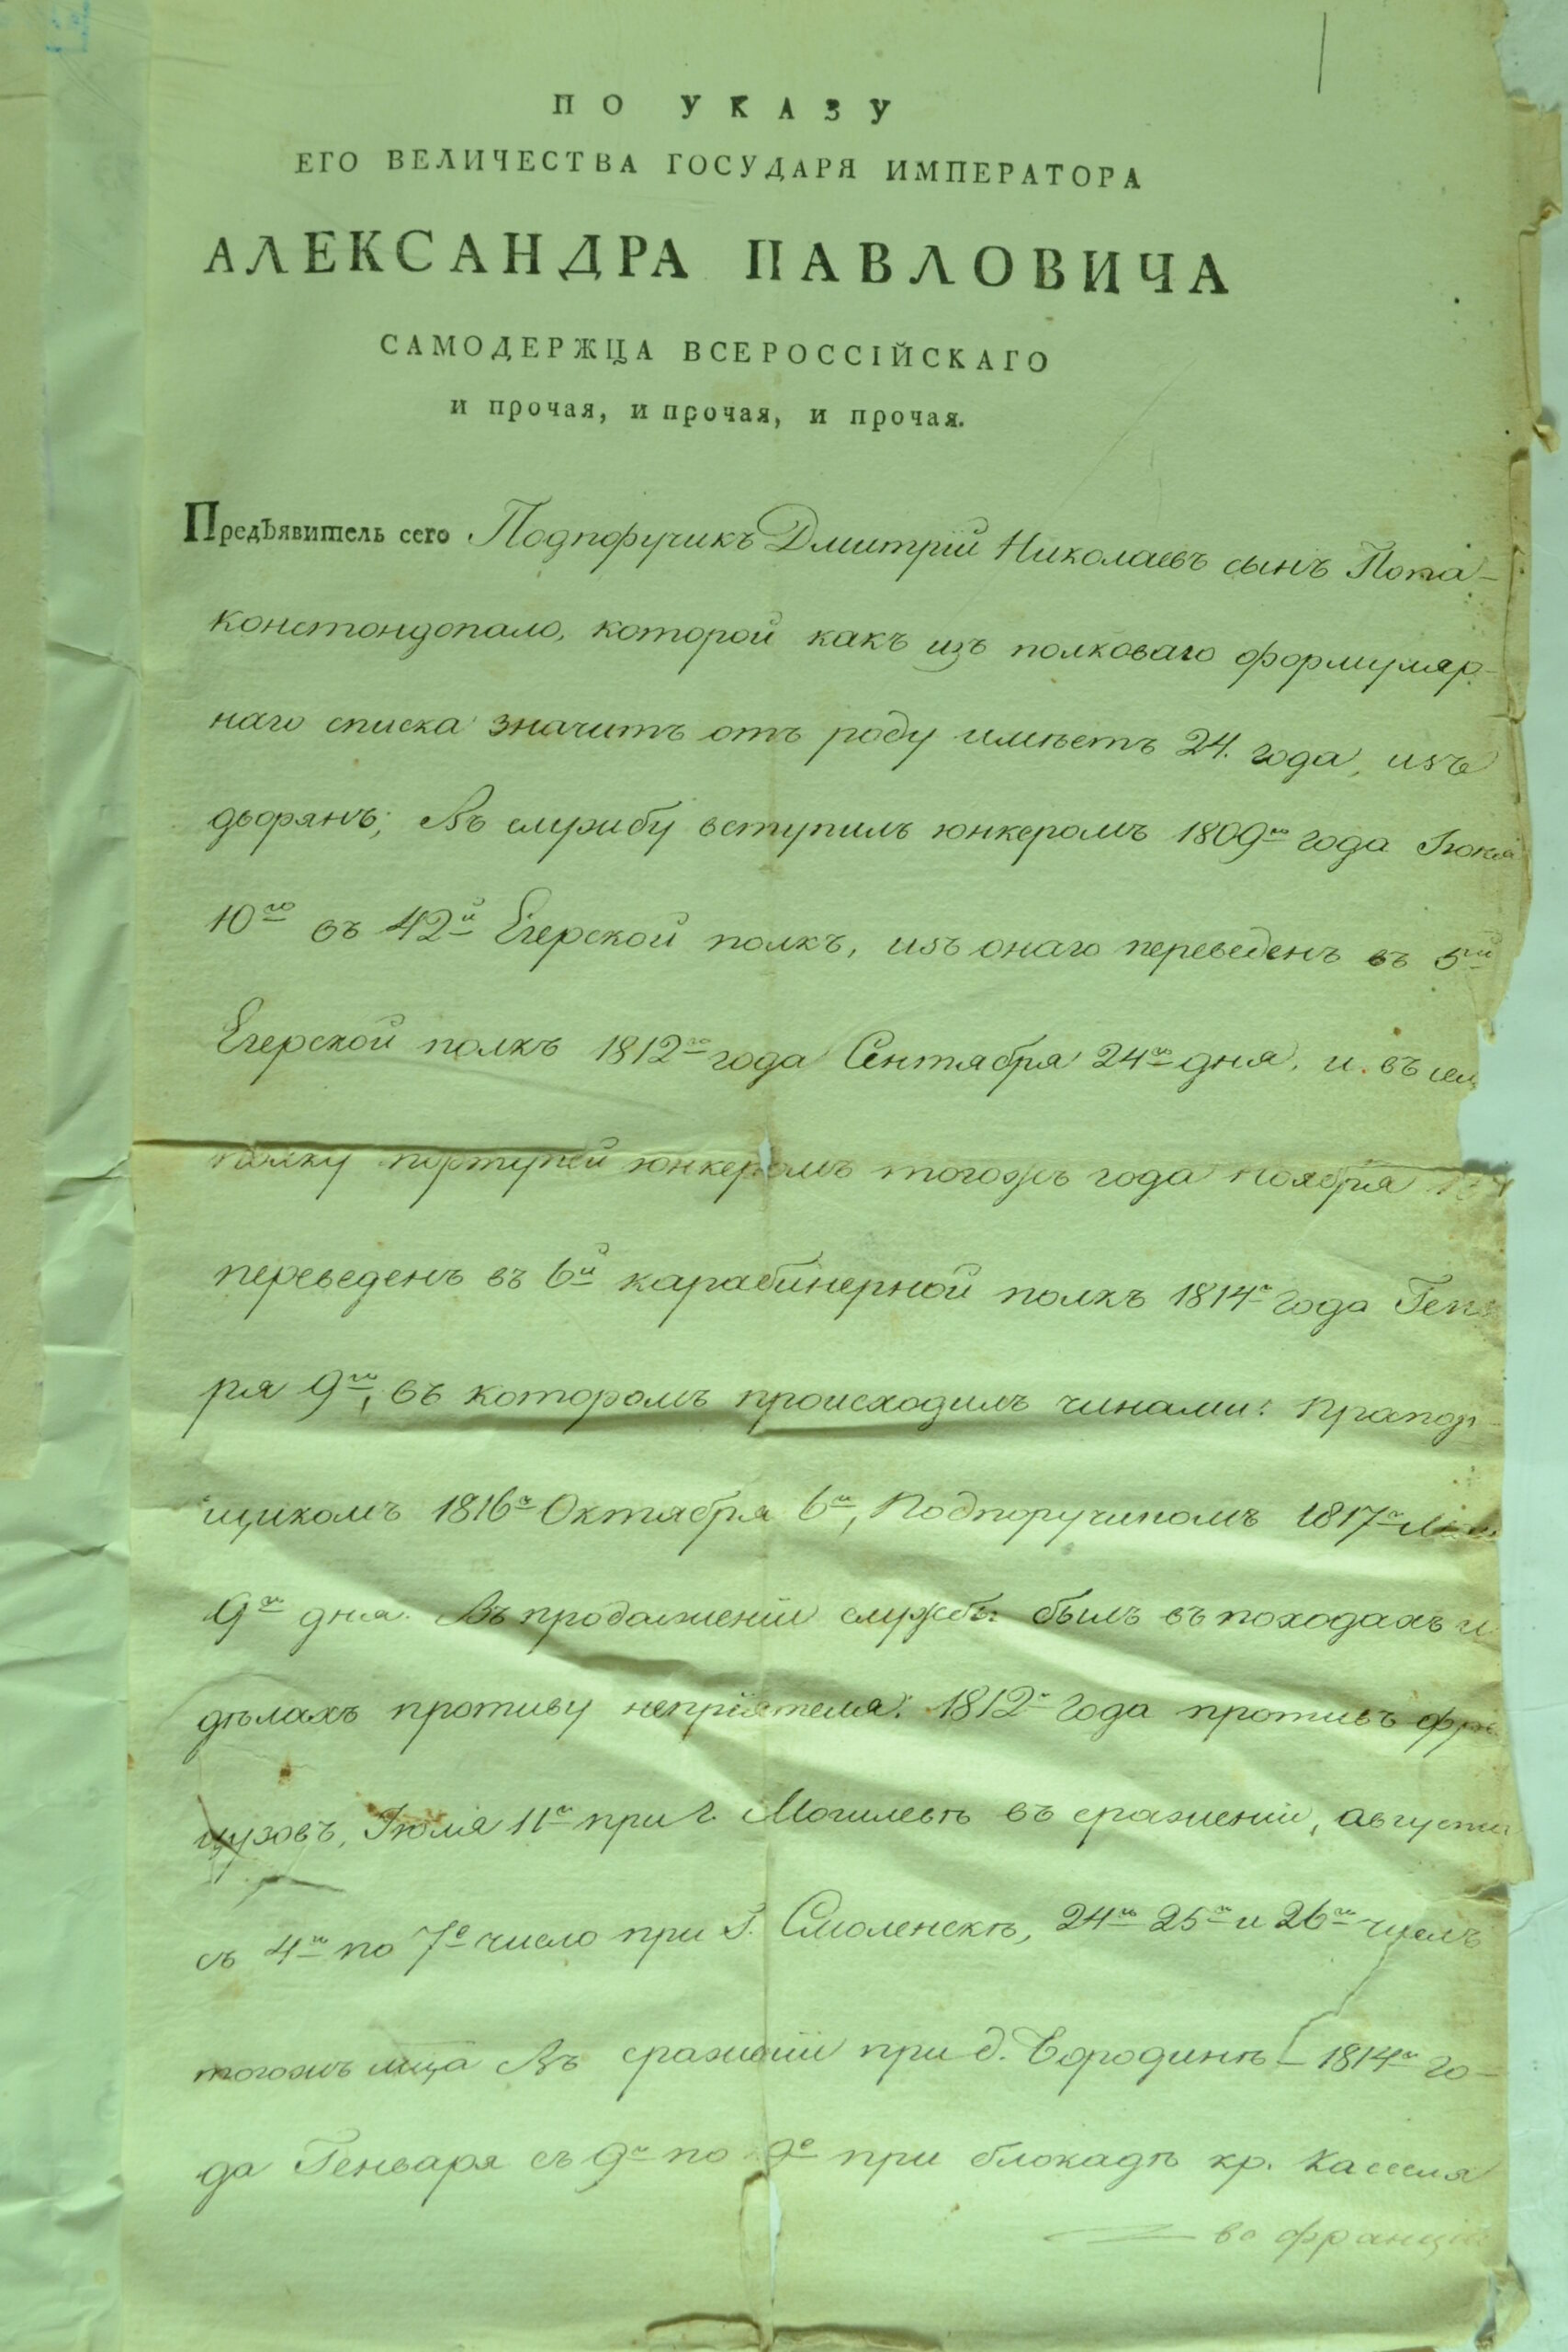 ПО УКАЗУ
ЕГО ВЕЛИЧЕСТВА ГОСУДАРЯ ИМПЕРАТОРА
АЛЕКСАНДРА ПАВЛОВИЧА
САМОДЕРЖЦА ВСЕРОССІЙСКАГО
и прочая, и прочая, и прочая.
Предъявитель сего Подпоручикъ Дмитрій Николаевъ сынъ Попа-
констондопало, которой какъ изъ полковаго формуляр-
наго списка значитъ отъ роду имѣетъ 24. года, изъ
дворянъ; Въ службу вступилъ юнкеромъ 1809го года Іюня
10го въ 42й Егерской полкъ, изъ онаго переведенъ въ 5ый
Егерской полкъ 1812го года Сентября 24го дня, и въ сем
полку портупей юнкеромъ тогожъ года Ноября
переведенъ въ 6й карабинерной полкъ 1814го года Генв
ря 9го, въ которомъ происходилъ чинами: Прапор-
щикомъ 1816го Октября 6го, Подпоручикомъ 1817го
9го дня. Въ продолженіи службы былъ въ походахъ и
дѣлахъ противу непріятеля: 1812го года противъ фра
цузовъ, Іюля 11го при г. Могилевѣ въ сраженіи, августа
съ 4го по 7е число при г. Смоленскѣ, 24го 25го и 26го числъ
тогожъ мца Въ сраженіи при д. Бородинѣ [– 1814го го-
да Генваря съ 9го по 9е при блокадѣ кр. Касселя
во франціи